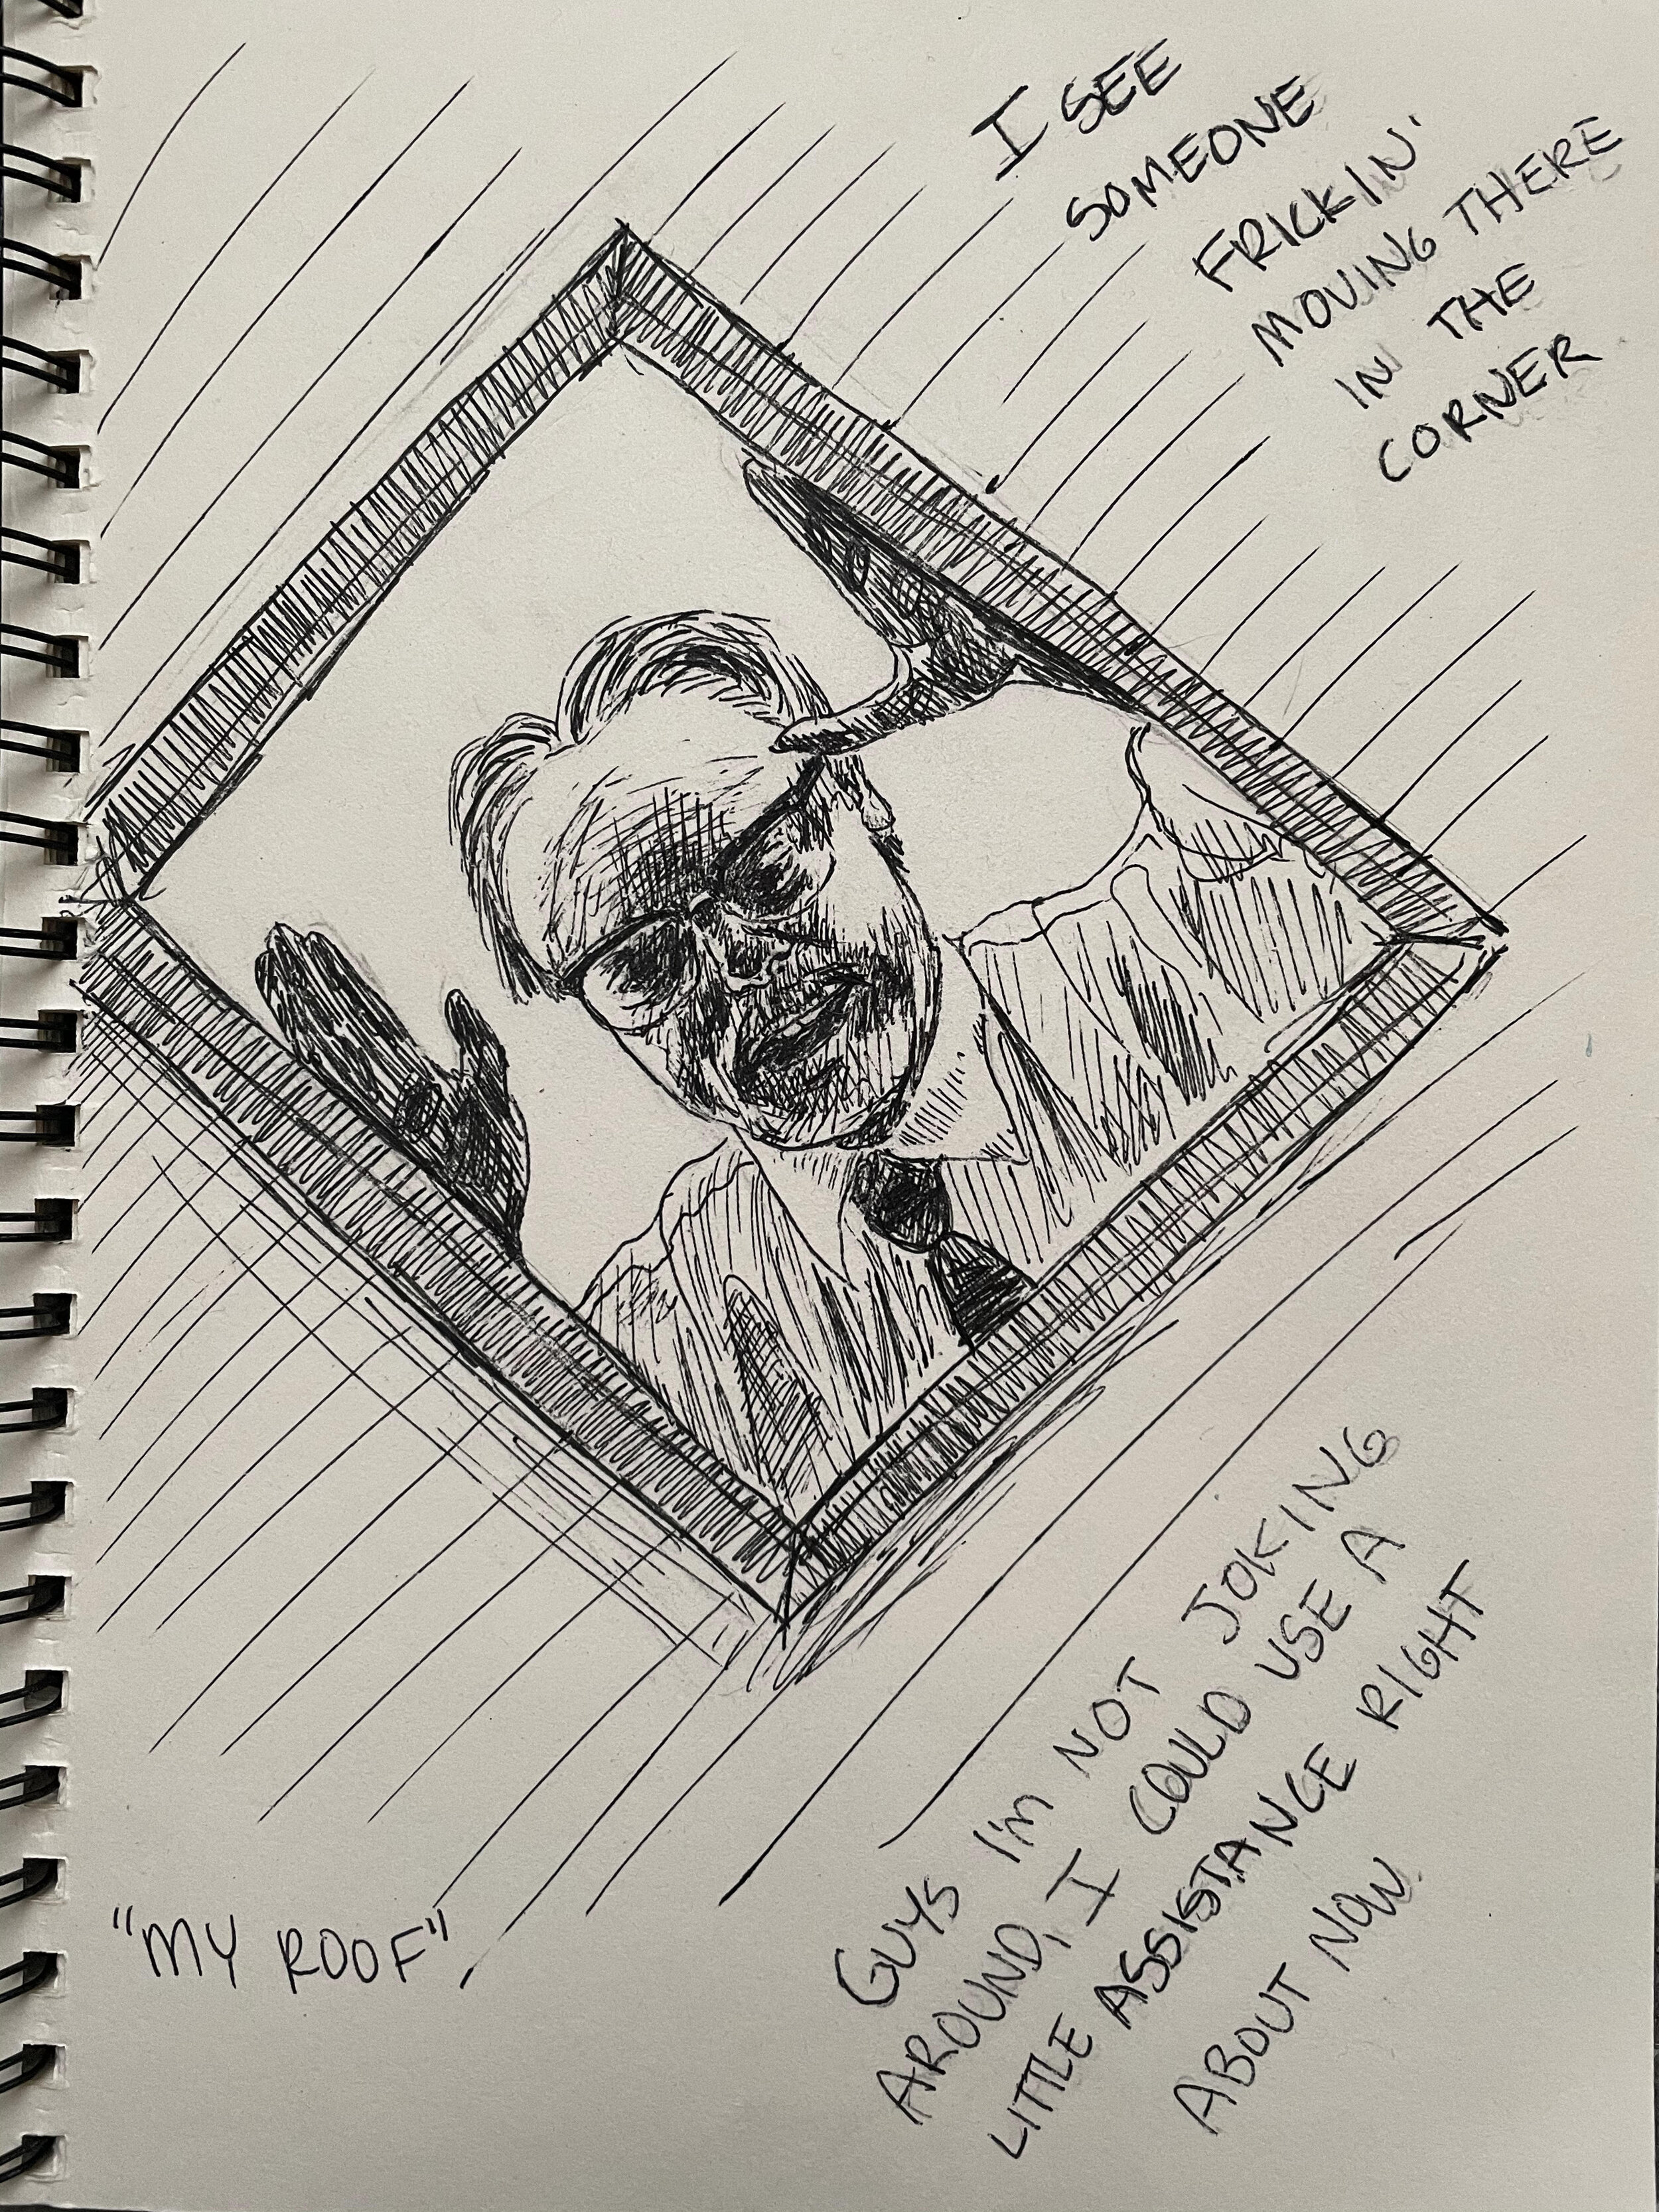 I SEE
SOMEONE
FRICKIN'
MOVING THERE
IN THE
CORNER
GUYS I'm NOT JOKING
AROUND, I COULD USE A
LITTLE ASSISTANCE RIGHT
ABOUT NOW.
"MY ROOF"